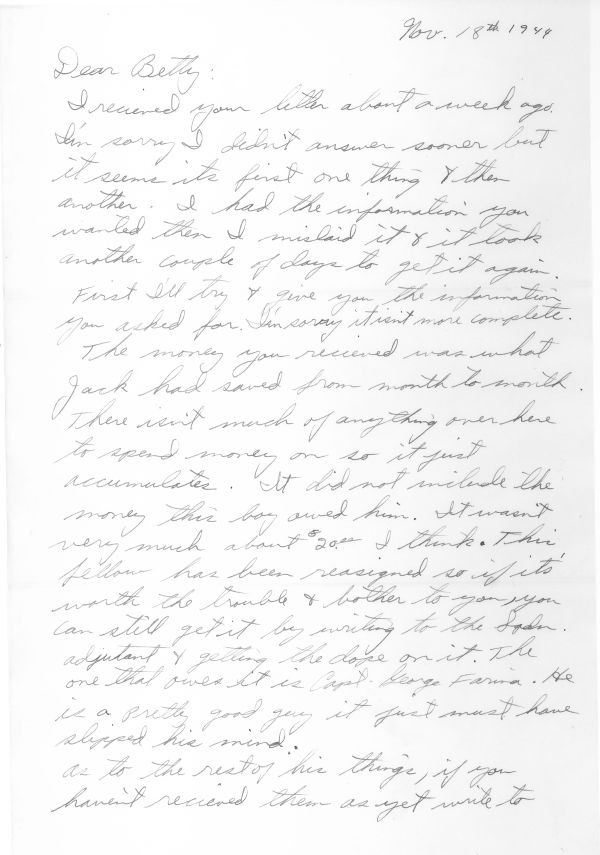 Nov. 18th 1944
Dear Betty:
I recieved your letter about a week ago.
I'm sorry I didn't answer sooner but
it seems its first one thing & then
another. I had the information you
wanted then I mislaid it & it took
another couple of days to get it again.
First I'll try & give you the information
you asked for. I'm sorry it isn't more complete.
The money you recieved was what
Jack had saved from month to month.
There isn't much of anything over here
to spend money on so it just
accumulates. It did not include the
money this boy owed him. It wasn't
very much about $20.00 I think. This
fellow has been reasigned so if its
worth the trouble & bother to you, you
can still get it by writing to the Sqdn.
adjutant & getting the dope on it. The
one that owes it is Capt. George Farina. He
is a pretty good guy it just must have
slipped his mind.
as to the rest of his things, if you
haven't recieved them as yet write to